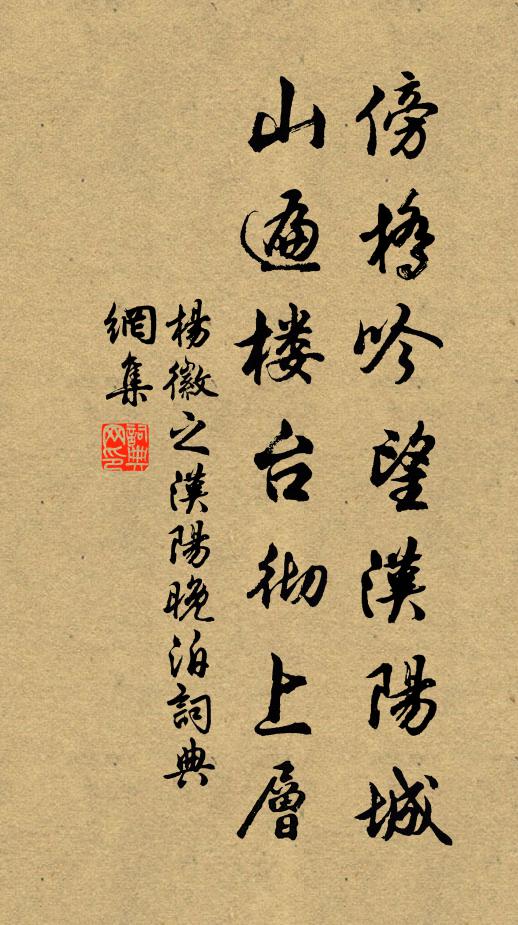 傍橋吟望漢陽城
山遍楼台彻上層
楊徽之漢陽晚泊詞典
網集
詞典
网印